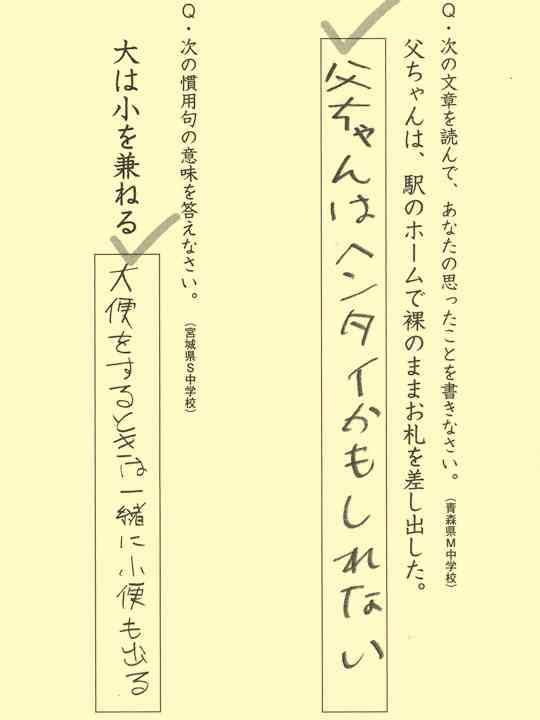 Q・次の文章を読んで、あなたの思ったことを書きなさい。（青森県M中学校）
父ちゃんは、駅のホームで裸のままお札を差し出した。
父ちゃんはヘンタイかもしれない
Q・次の慣用句の意味を答えなさい。（宮城県S中学校）
大は小を兼ねる
大便をするときは一緒に小便も出る